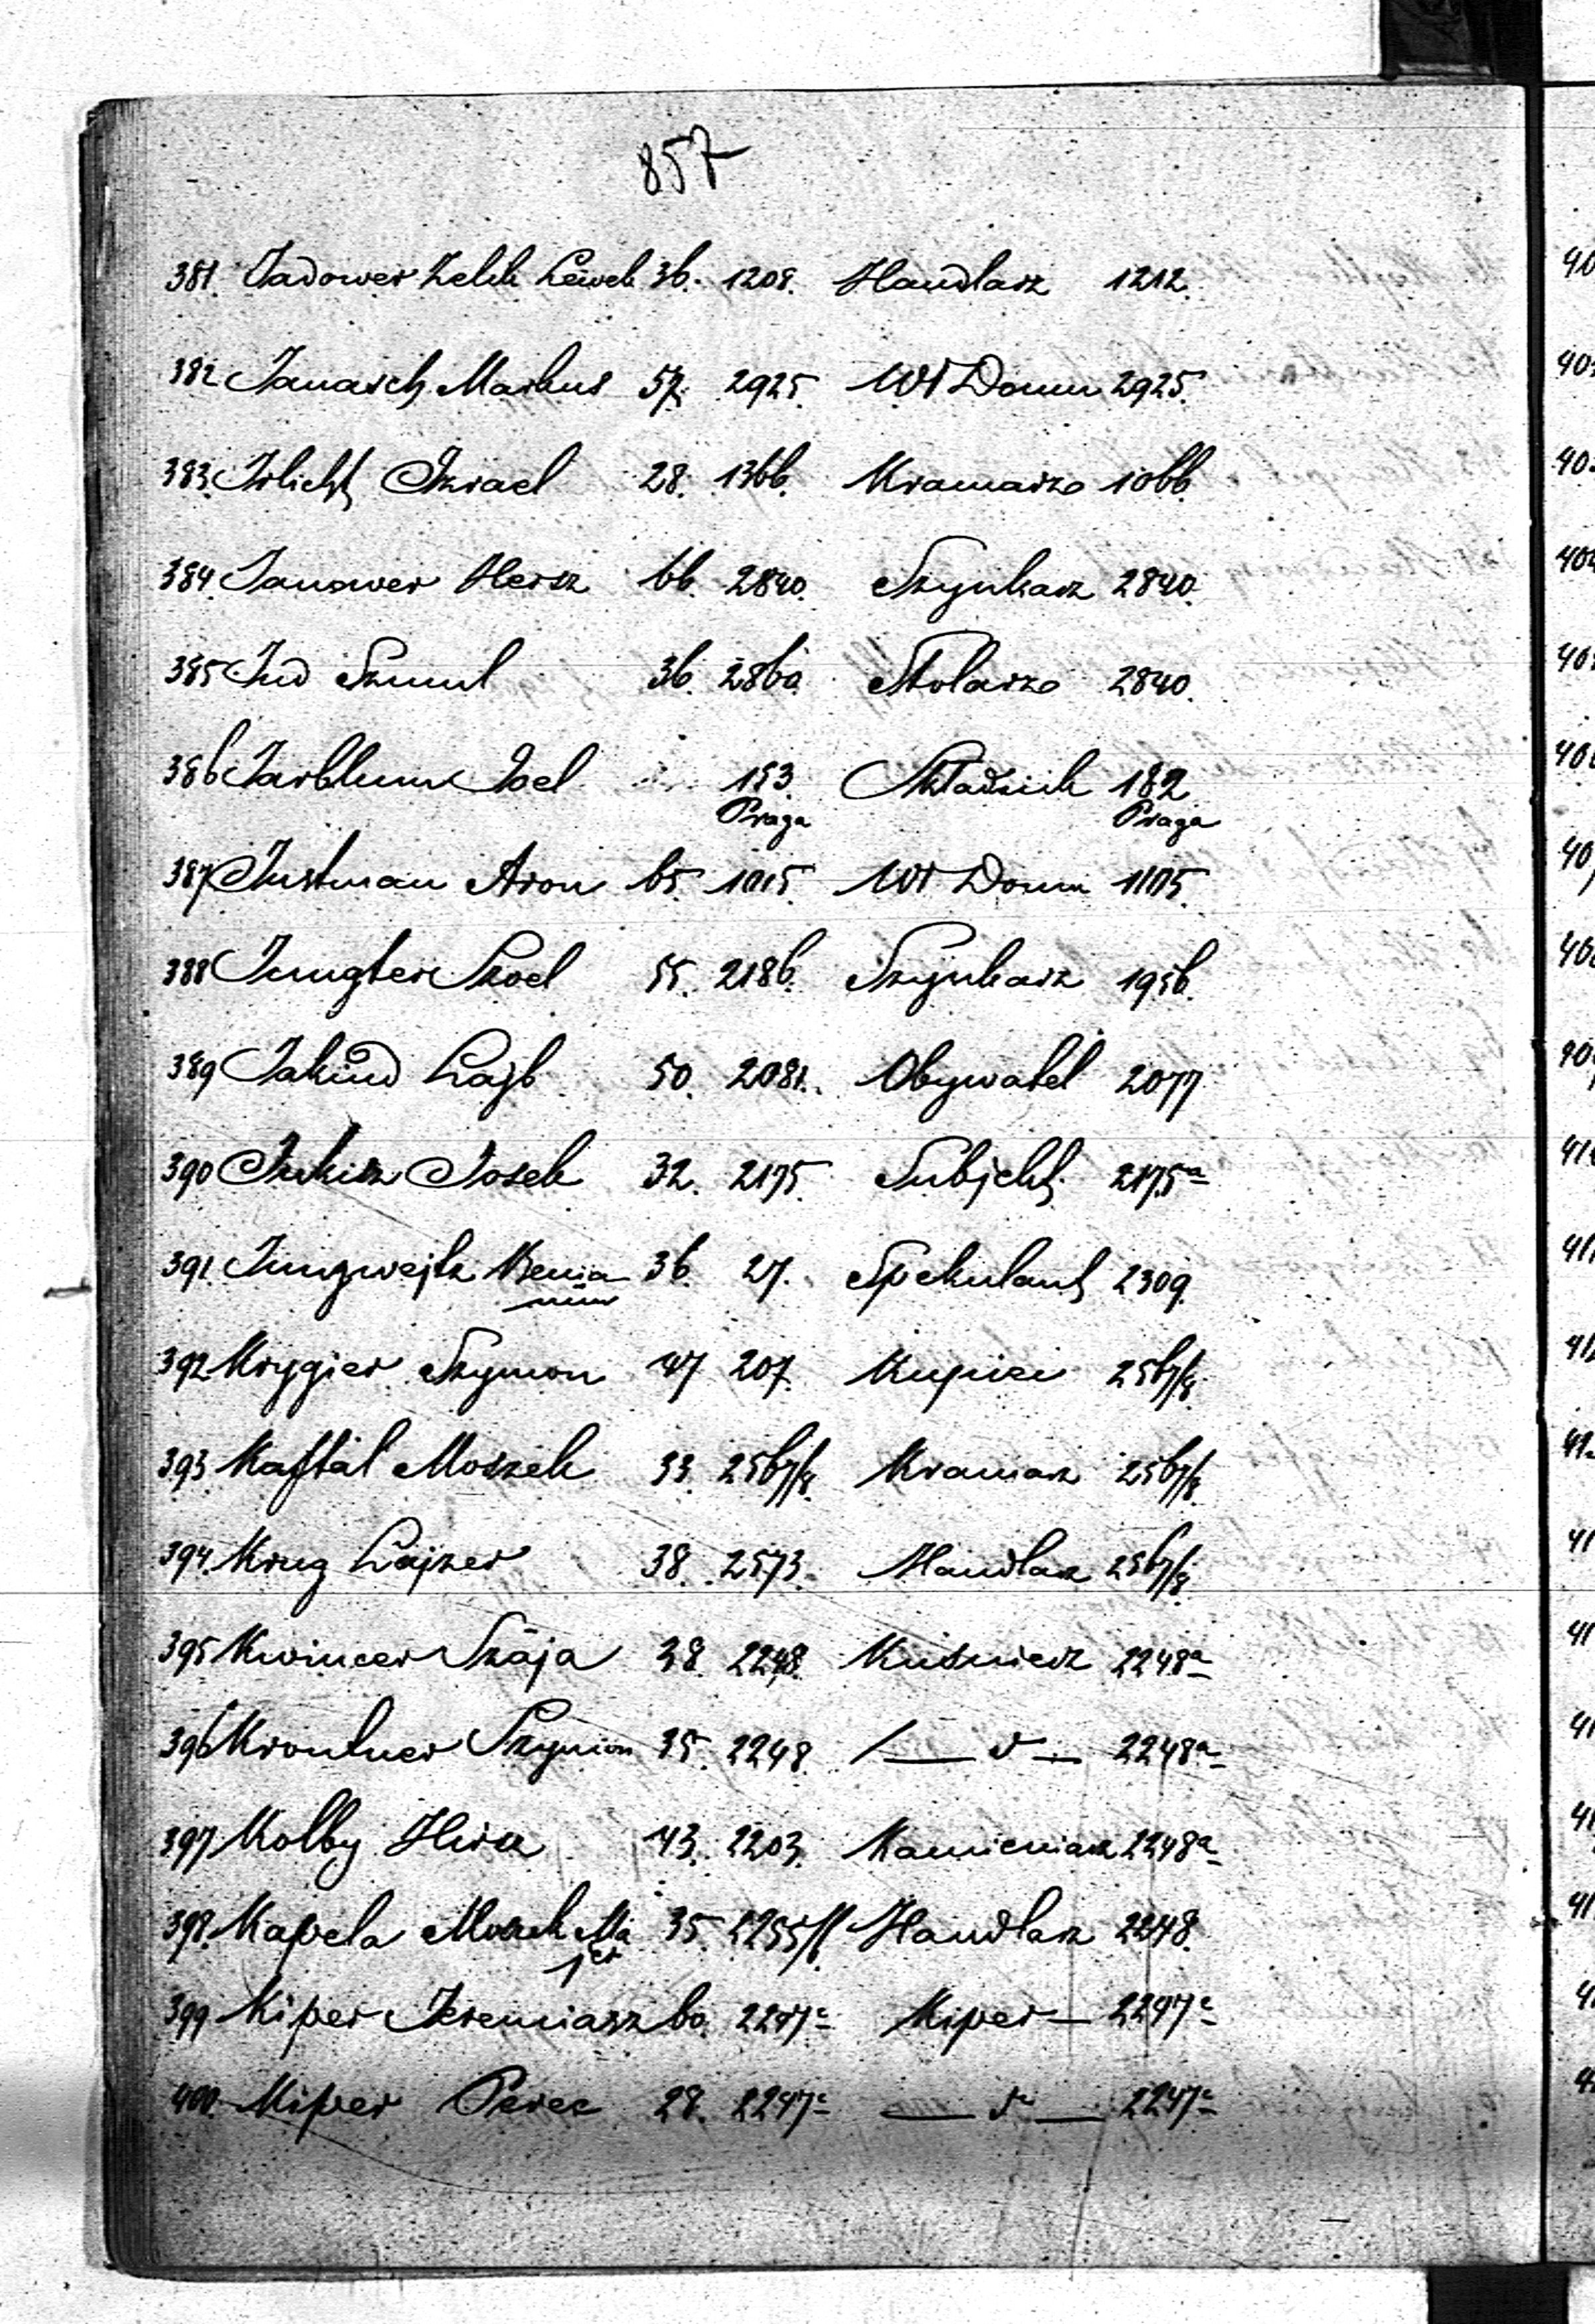 857
381. Jadower Lelek Lewek 36. 1208. Handlarz 1212.
382 Janasch Markus 57. 2925. Wł Domu 2925.
383. Irlicht Izrael 28. 1366. Kramarz 1066.
384. Janower Hersz 66. 2840. Szynkarz 2840.
385 Jud Szmul 36. 2860 Stolarz 2840.
386 Jarblum Joel 183 Składnik 182
Praga Praga
387 Justman Aron 65. 1015. Wł Domu 1105.
388 Jungter Szoel 55. 2186. Szynkarz 1956.
389 Jakind Lajb 50. 2081. Obywatel 2077
390 Jukisz Josek 32. 2175. Subjekt 2175a
391. Jungwejtz Benia 36. 27. Spekulant 2309.
min
392 Krygier Szymon 47 207. Kupiec 2567/8.
393 Kaftal Moszek 33. 2567/8. Kramarz 2567/8.
394. Krug Lajzer 38. 2573. Handlarz 2567/8.
395 Kwincer Szaja 38. 2248. Kuśnierz 2248a
396 Krontner Szymon 35. 2248. — d — 2248a
397 Kolby Hirsz 43. 2203. Kamieniarz 2248a
398. Kapela Moszek Ma 35. 2255/6 Handlarz 2248.
jer
399 Kiper Jeremiasz 60. 2247c Kiper — 2247c
400. Kiper Perec 28. 2247c — d — 2247c